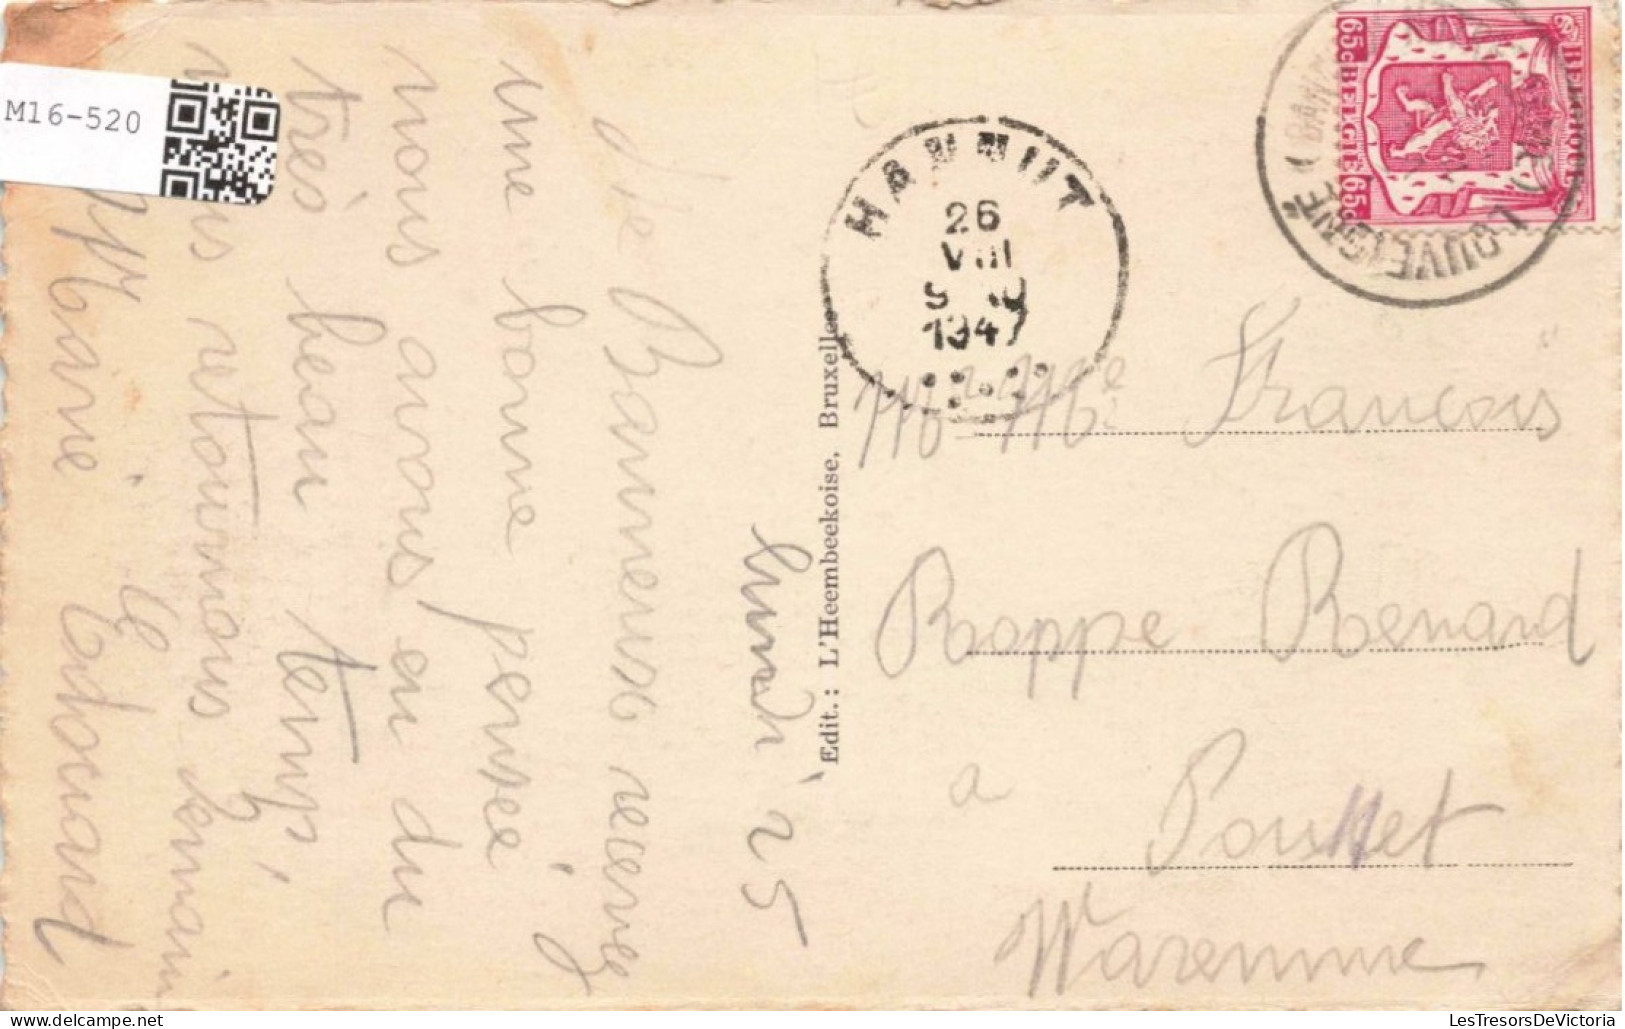 M16-520
lundi 25
de Banneux recevez
une bonne pensée
nous avons eu du
très beau temps,
nous retournons demain
Marie & Edouard
Edit. : L'Heembeekoise, Bruxelles
HANNUT
26
VIII
1947
LOUVEIGNÉ (BANNEUX)
BELGIQUE
BELGIE
65c
65c
Mr Me François
Roppe Renard
à Pousset
Waremme
LesTresorsDeVictoria